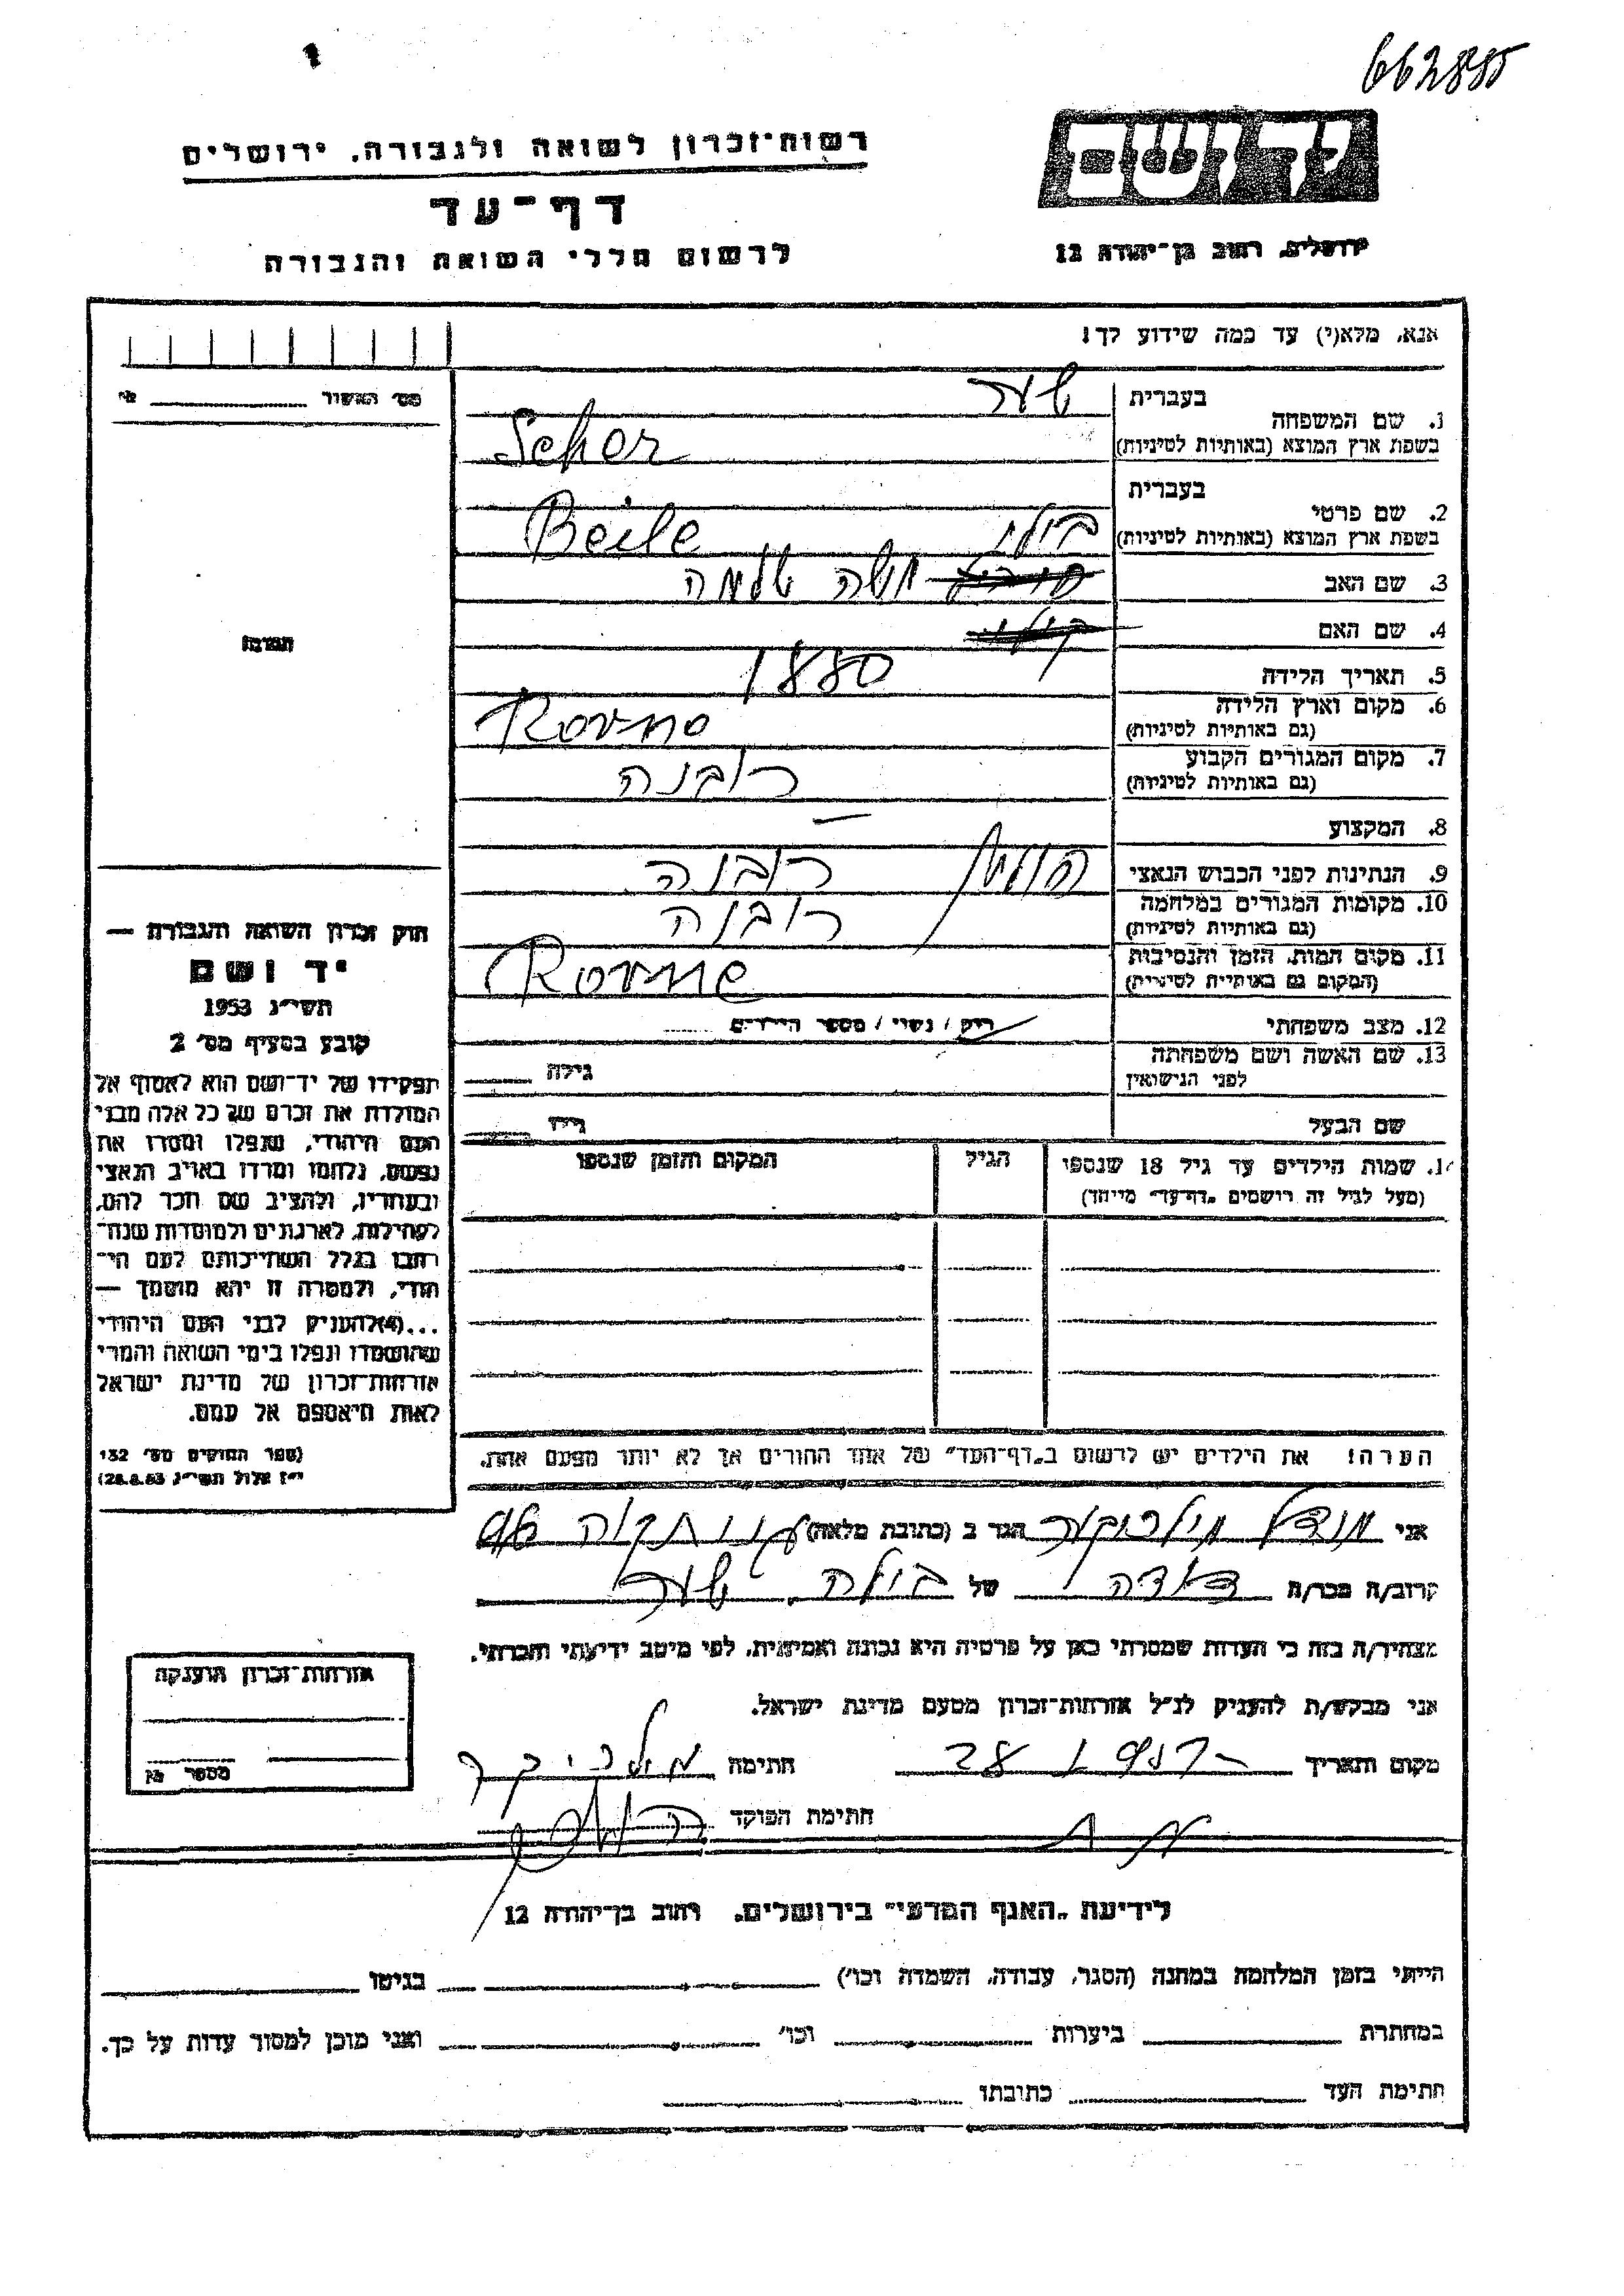 662885
רשות־זכרון לשואה ולגבורה, ירושלים
דף־עד
לרשום חללי השואה והגבורה
יד ושם
ירושלים, רחוב בן־יהודה 12
אנא, מלא(י) עד כמה שידוע לך!
מס׳ האשור
בעברית
1. שם המשפחה
בשפת ארץ המוצא (באותיות לטיניות)
Schor
בעברית
2. שם פרטי
בשפת ארץ המוצא (באותיות לטיניות)
Beile
3. שם האב משה שלמה
4. שם האם
5. תאריך הלידה 1880
6. מקום וארץ הלידה
(גם באותיות לטיניות)
Rovno
7. מקום המגורים הקבוע
(גם באותיות לטיניות)
רובנה
8. המקצוע —
9. הנתינות לפני הכבוש הנאצי רובנה
10. מקומות המגורים במלחמה
(גם באותיות לטיניות)
רובנה
11. מקום המות, הזמן והנסיבות
(המקום גם באותיות לטיניות)
Rovne
12. מצב משפחתי רוק / נשוי / מספר הילדים
13. שם האשה ושם משפחתה
לפני הנישואין
גילה
שם הבעל גילו
14. שמות הילדים עד גיל 18 שנספו הגיל המקום והזמן שנספו
(מעל לגיל זה רושמים „דף־עד״ מיוחד)
הערה! את הילדים יש לרשום ב„דף־העד״ של אחד ההורים אך לא יותר מפעם אחת.
תמונה
חוק זכרון השואה והגבורה —
יד ושם
תשי״ג 1953
קובע בסעיף מס׳ 2
תפקידו של יד־ושם הוא לאסוף אל
המולדת את זכרם של כל אלה מבני
העם היהודי, שנפלו ומסרו את
נפשם, נלחמו ומרדו באויב הנאצי
ובעוזריו, ולהציב שם וזכר להם,
לקהילות, לארגונים ולמוסדות שנח־
רבו בגלל השתייכותם לעם הי־
הודי, ולמטרה זו יהא מוסמך —
...(4)להעניק לבני העם היהודי
שהושמדו ונפלו בימי השואה והמרי
אזרחות־זכרון של מדינת ישראל
לאות היאספם אל עמם.
(ספר החוקים מס׳ 132
י״ז אלול תשי״ג 28.8.53)
אני מנדל הגר ב (כתובת מלאה)
קרוב/ה מכר/ה דודה של בילה שער
מצהיר/ה בזה כי העדות שמסרתי כאן על פרטיה היא נכונה ואמיתית, לפי מיטב ידיעתי והכרתי.
אני מבקש/ת להעניק לנ״ל אזרחות־זכרון מטעם מדינת ישראל.
מקום ותאריך חתימה
חתימת הפוקד
אזרחות־זכרון הוענקה
מספר
לידיעת „האגף המדעי״ בירושלים, רחוב בן־יהודה 12
הייתי בזמן המלחמה במחנה (הסגר, עבודה, השמדה וכו׳) בגיטו
במחתרת ביערות וכו׳ ואני מוכן למסור עדות על כך.
חתימת העד כתובתו